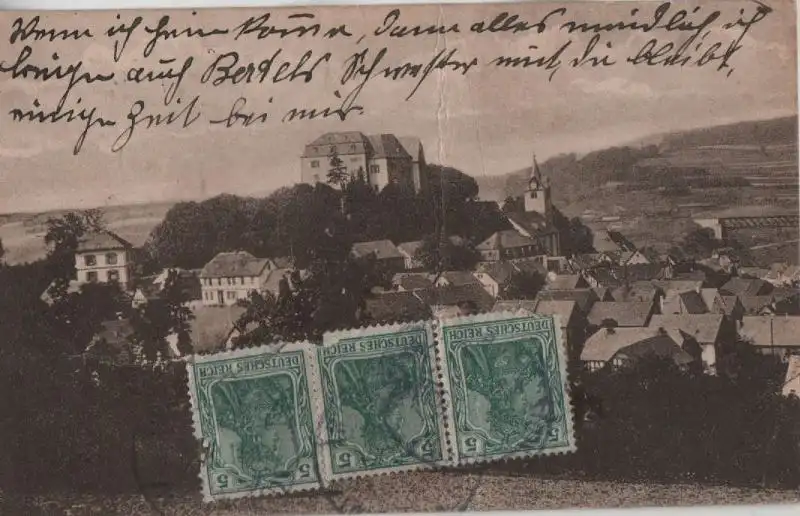 Wenn ich heim komme, dann alles mündlich, ich
bringe auch Bertels Schwester mit, die bleibt
einige Zeit bei mir.
DEUTSCHES REICH
5 5
DEUTSCHES REICH
5 5
DEUTSCHES REICH
5 5